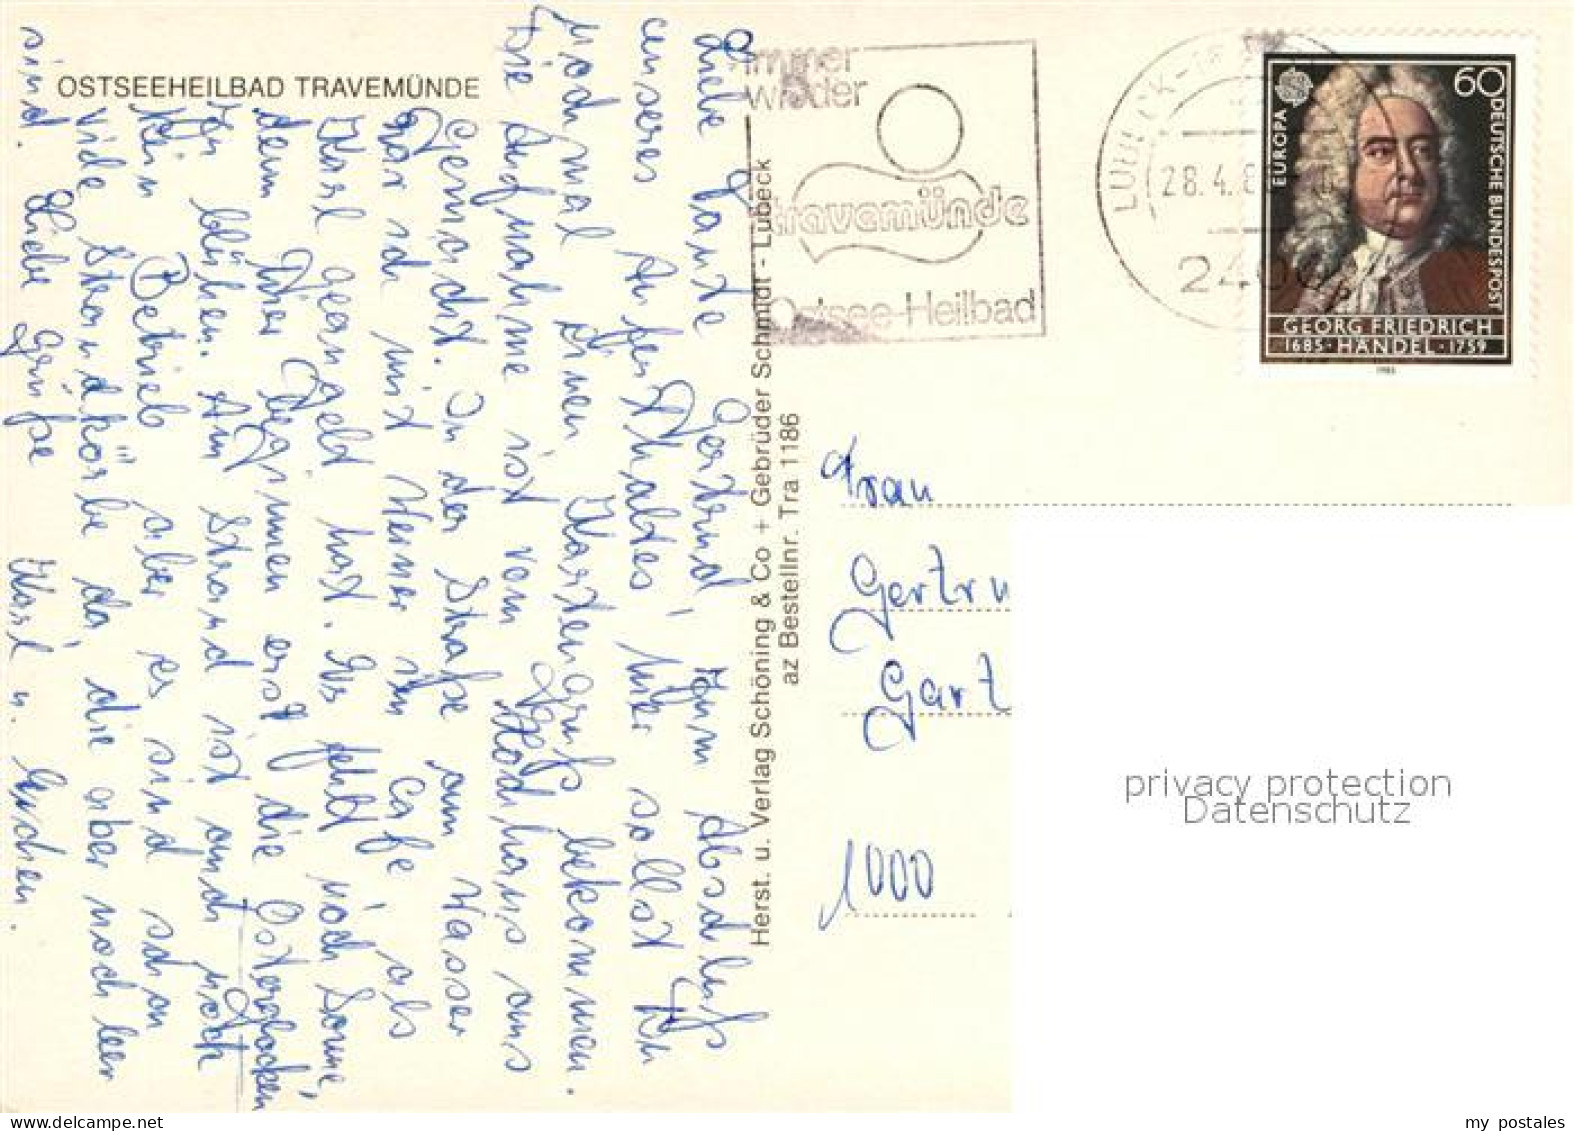 OSTSEEHEILBAD TRAVEMÜNDE
Liebe Tante Gertrud! Zum Abschluß
unseres Aufenthaltes hier sollst Du
noch mal einen Kartengruß bekommen.
Die Aufnahme ist vom Hochhaus aus
gemacht. In der Straße am Wasser
war ich mit Werner im Café als
Karl geangelt hat. Es fehlt noch Sonne,
denn hier beginnen erst die Osterglocken
zu blühen. Am Strand ist auch noch
kein Betrieb aber es sind schon
viele Strandkörbe da die aber noch leer
sind. Liebe Grüße Karl u.
Herst. u. Verlag Schöning & Co + Gebrüder Schmidt - Lübeck
az Bestellnr. Tra 1186
immer
wieder
travemünde
Ostsee-Heilbad
28.4.8
2400
EUROPA
60
DEUTSCHE BUNDESPOST
GEORG FRIEDRICH
1685 · HÄNDEL · 1759
1985
Frau
Gertru
Gart
1000
privacy protection
Datenschutz
my postales